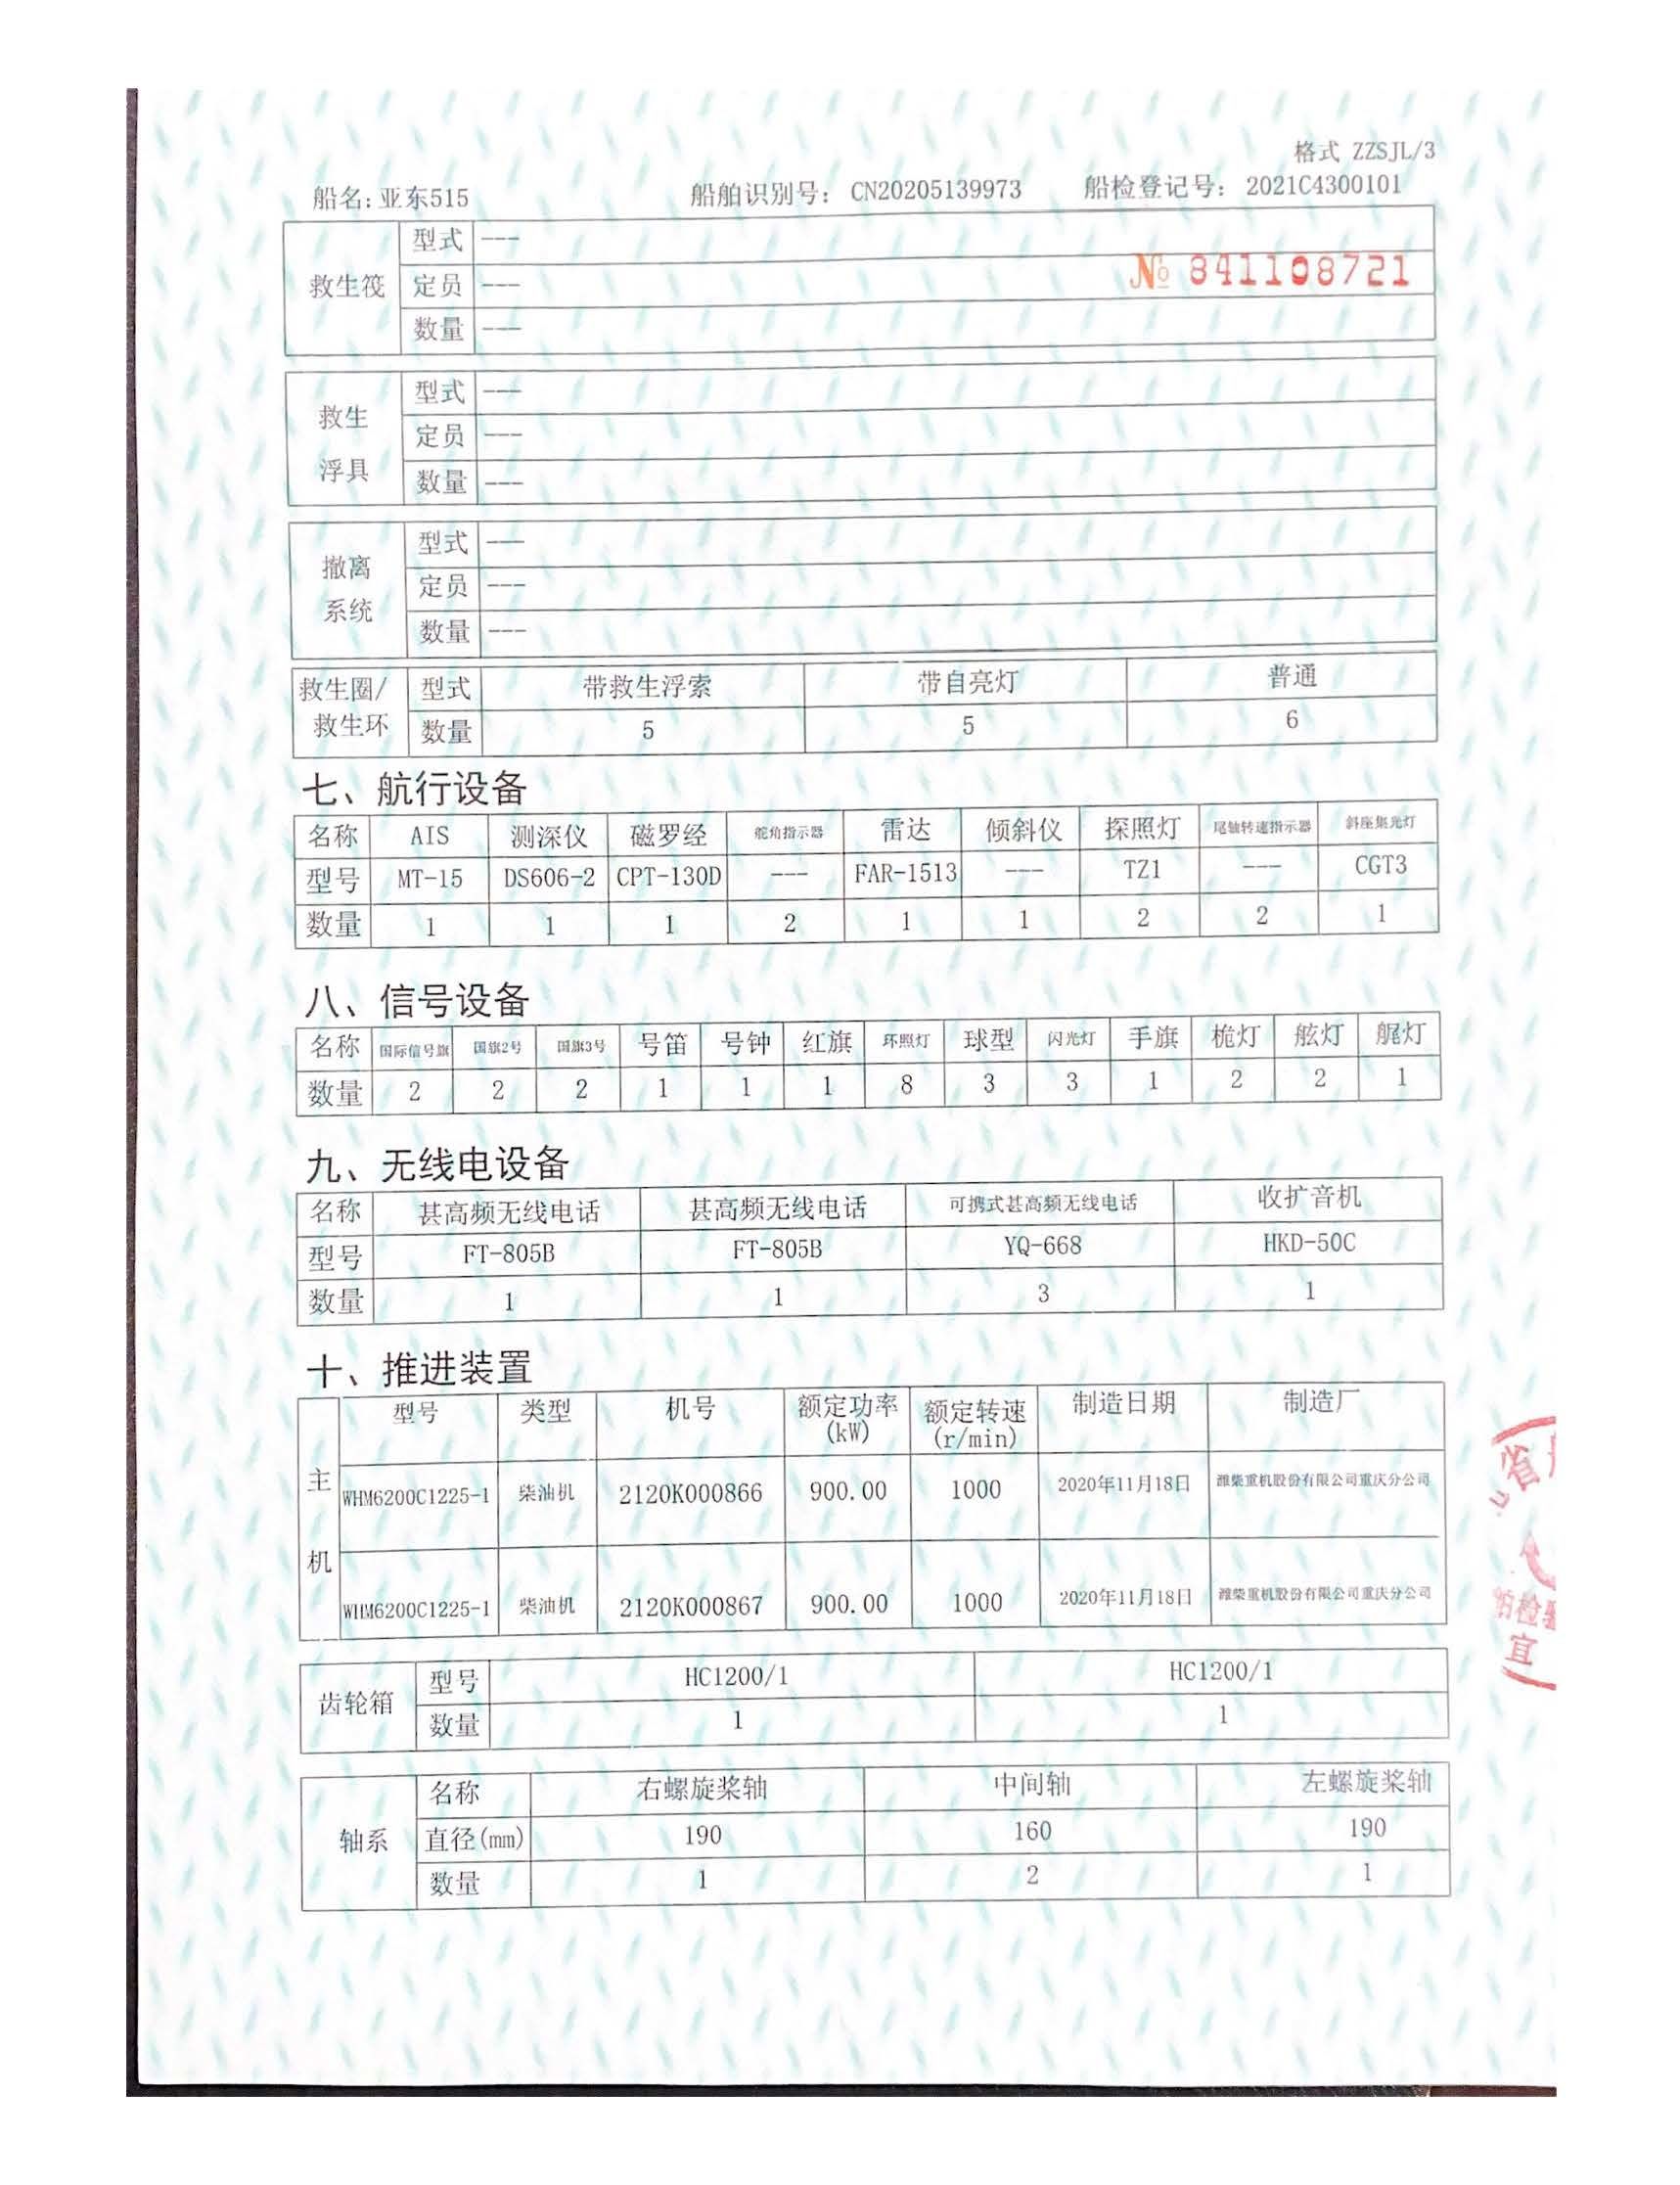 格式 ZZSJL/3
船名:亚东515 船舶识别号: CN20205139973 船检登记号: 2021C4300101
№ 841108721
救生筏 型式 ---
定员 ---
数量 ---
救生浮具 型式 ---
定员 ---
数量 ---
撤离系统 型式 ---
定员 ---
数量 ---
救生圈/救生环 型式 带救生浮索 带自亮灯 普通
数量 5 5 6
七、航行设备
名称 AIS 测深仪 磁罗经 舵角指示器 雷达 倾斜仪 探照灯 尾轴转速指示器 斜座集光灯
型号 MT-15 DS606-2 CPT-130D --- FAR-1513 --- TZ1 --- CGT3
数量 1 1 1 2 1 1 2 2 1
八、信号设备
名称 国际信号旗 国旗2号 国旗3号 号笛 号钟 红旗 环照灯 球型 闪光灯 手旗 桅灯 舷灯 艉灯
数量 2 2 2 1 1 1 8 3 3 1 2 2 1
九、无线电设备
名称 甚高频无线电话 甚高频无线电话 可携式甚高频无线电话 收扩音机
型号 FT-805B FT-805B YQ-668 HKD-50C
数量 1 1 3 1
十、推进装置
主机 型号 类型 机号 额定功率(kW) 额定转速(r/min) 制造日期 制造厂
WHM6200C1225-1 柴油机 2120K000866 900.00 1000 2020年11月18日 潍柴重机股份有限公司重庆分公司
WHM6200C1225-1 柴油机 2120K000867 900.00 1000 2020年11月18日 潍柴重机股份有限公司重庆分公司
齿轮箱 型号 HC1200/1 HC1200/1
数量 1 1
轴系 名称 右螺旋桨轴 中间轴 左螺旋桨轴
直径(mm) 190 160 190
数量 1 2 1
省
检
宜